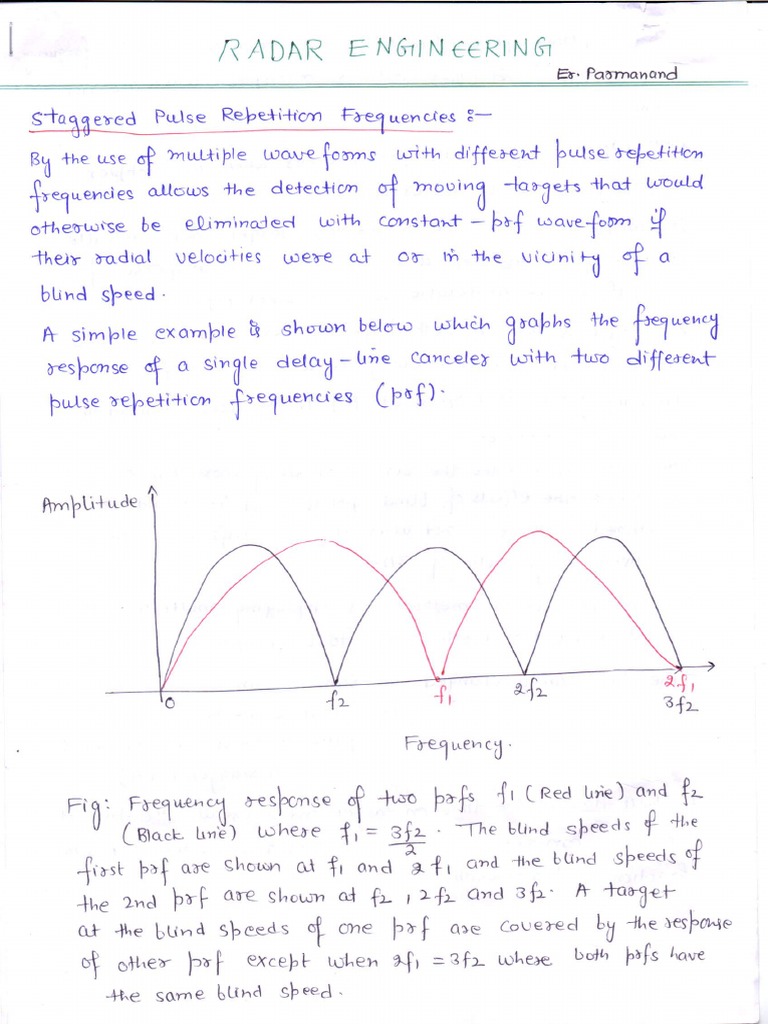 RADAR ENGINEERING
Er. Parmanand
Staggered Pulse Repetition Frequencies :-
By the use of multiple waveforms with different pulse repetition
frequencies allows the detection of moving targets that would
otherwise be eliminated with constant-prf waveform if
their radial velocities were at or in the vicinity of a
blind speed.
A simple example is shown below which graphs the frequency
response of a single delay-line canceler with two different
pulse repetition frequencies (prf).
Amplitude
0
f2
f1
2f2
2f1
3f2
Frequency.
Fig: Frequency response of two prfs f1 (Red line) and f2
(Black line) where f1 = 3f2/2. The blind speeds of the
first prf are shown at f1 and 2f1 and the blind speeds of
the 2nd prf are shown at f2, 2f2 and 3f2. A target
at the blind speeds of one prf are covered by the response
of other prf except when 2f1 = 3f2 where both prfs have
the same blind speed.